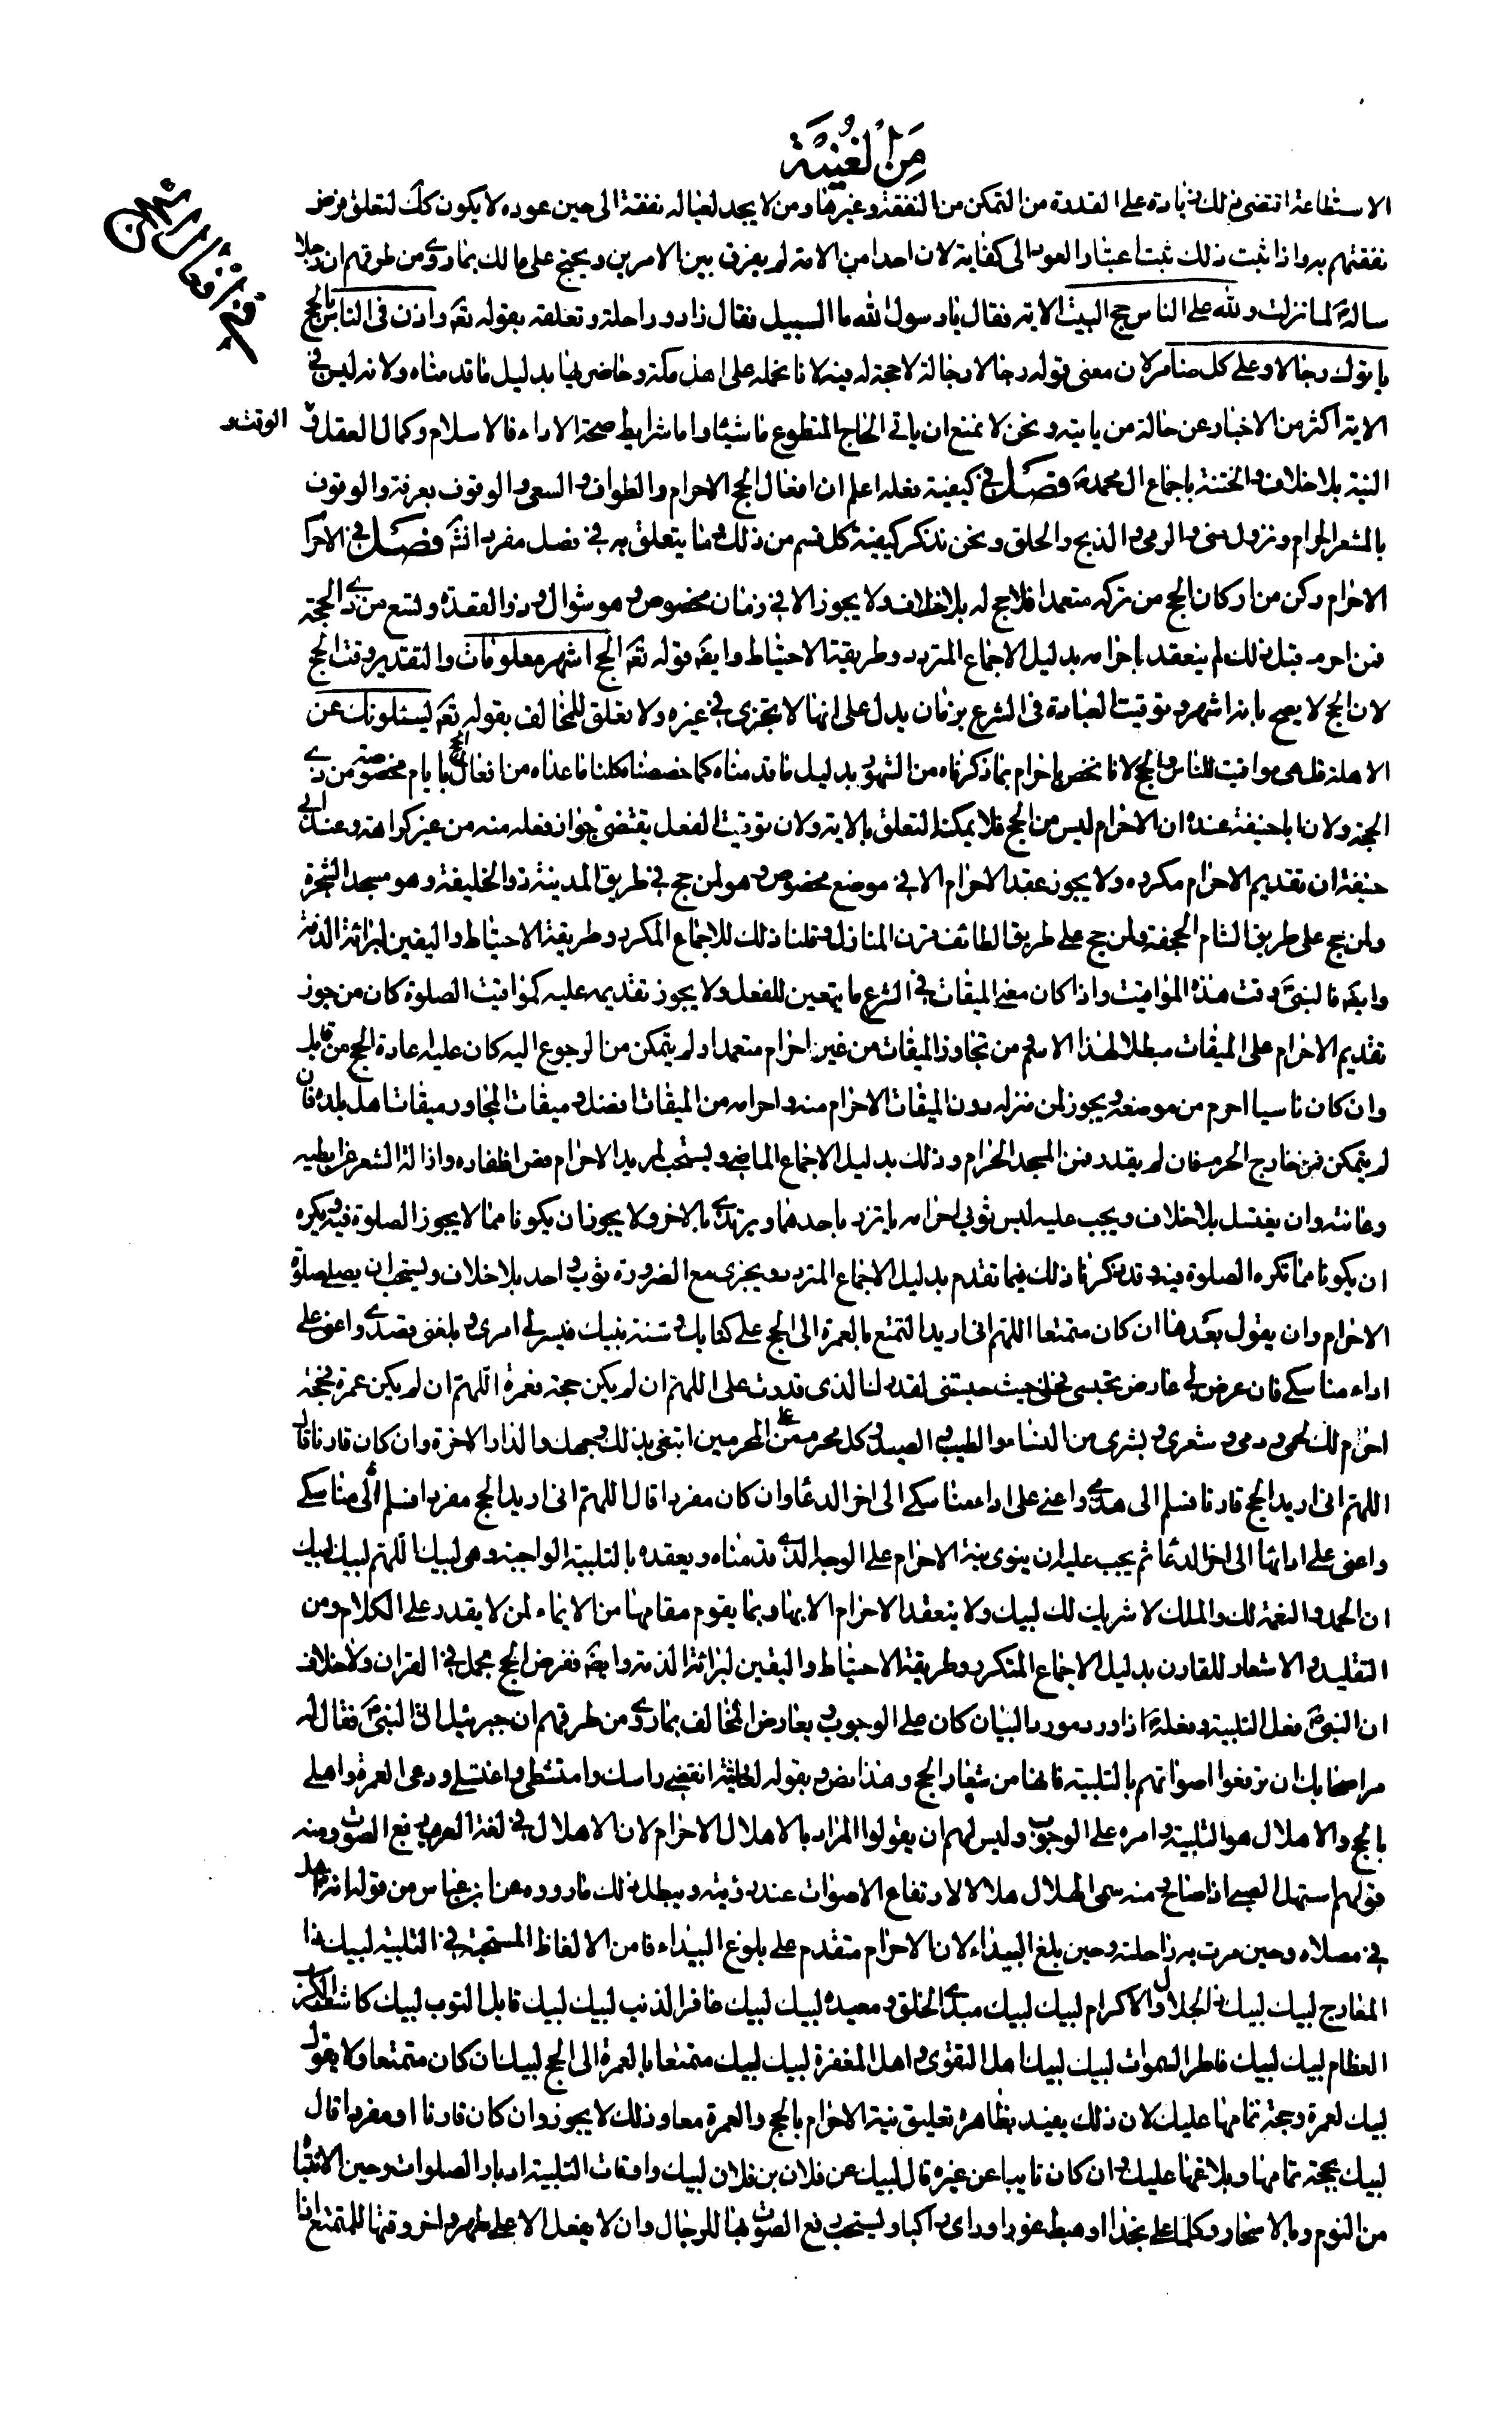 مِنَ الْغُنْيَةِ
في افعال الحج
الاستطاعة اقتضى ذلك زيادة على القدرة من التمكن من النفقة وغيرها ومن لا يجد لعياله نفقة الى حين عوده لا يكون كك لتعلق فرض
نفقتهم به واذا ثبت ذلك ثبت اعتبار العود الى كفاية لان احدا من الامة لم يفرق بين الامرين ويحتج على مالك بما روى من طرقهم ان رجلا
ساله ص لما نزلت ولله على الناس حج البيت الاية فقال يا رسول الله ما السبيل فقال زاد وراحلة وتعلقه بقوله تعه واذن في الناس بالحج
ياتوك رجالا وعلى كل ضامر لان معنى قوله رجالا رجالة لا حجة له فيه لانا نحمله على اهل مكة وحاضريها بدليل ما قدمناه ولانه ليس في
الاية اكثر من الاخبار عن حالة من ياتيه ونحن لا نمنع ان ياتي الحاج المتطوع ماشيا واما شرايط صحة الاداء فالاسلام وكمال العقل و الوقت و
النية بلا خلاف والختنة باجماع ال محمد ص فصل في كيفية فعله اعلم ان افعال الحج الاحرام والطواف والسعي والوقوف بعرفة والوقوف
بالمشعر الحرام ونزول منى والرمي والذبح والحلق ونحن نذكر كيفية كل قسم من ذلك وما يتعلق به في فصل مفرد انشه فصل في الاحرا
الاحرام ركن من اركان الحج من تركه متعمدا فلا حج له بلا خلاف ولا يجوز الا في زمان مخصوص وهو شوال وذو القعدة وتسع من ذي الحجة
فمن احرم قبل ذلك لم ينعقد احرامه بدليل الاجماع المتردد وطريقة الاحتياط وايضه قوله تعه الحج اشهر معلومات والتقدير وقت الحج
لان الحج لا يصح بانه اشهر وتوقيت العبادة في الشرع بزمان يدل على انها لا تجزي في غيره ولا تعلق للمخالف بقوله تعه يسئلونك عن
الاهلة قل هي مواقيت للناس والحج لانا نخص احرام بما ذكرناه من الشهور بدليل ما قدمناه كما خصصنا كلنا ما عداه من افعال الحج بايام مخصوصة من ذي
الحجة ولان ابا حنيفة عنده ان الاحرام ليس من الحج فلا يمكنه التعلق بالاية ولان توقيت الفعل يقتضي جواز فعله منه من غير كراهة وعند ابي
حنيفة ان تقديم الاحرام مكروه ولا يجوز عقد الاحرام الا في موضع مخصوص وهو لمن حج في طريق المدينة ذو الحليفة وهو مسجد الشجرة
ولمن حج على طريق الشام الجحفة ولمن حج على طريق الطائف قرن المنازل وقلنا ذلك للاجماع المكرر وطريقة الاحتياط واليقين لبرائة الذمة
وايضه فالنبي ص وقت هذه المواقيت واذا كان معنى الميقات في الشرع ما يتعين للفعل ولا يجوز تقديمه عليه كمواقيت الصلوة كان من جوز
تقديم الاحرام على الميقات مبطلا لهذا الاسم من تجاوز الميقات من غير احرام متعمدا ولم يتمكن من الرجوع اليه كان عليه اعادة الحج من قابل
وان كان ناسيا احرم من موضعه ويجوز لمن منزله دون الميقات الاحرام منه واحرامه من الميقات افضل وميقات المجاور ميقات اهل بلده فان
لم يتمكن فمن خارج الحرم فان لم يقدر فمن المسجد الحرام وذلك بدليل الاجماع الماضي ويستحب لمريد الاحرام قص اظفاره وازالة الشعر عن ابطيه
وعانته وان يغتسل بلا خلاف ويجب عليه لبس ثوبي احرامه ياتزر باحدهما ويرتدي بالاخر ولا يجوز ان يكونا مما لا يجوز الصلوة فيه ويكره
ان يكونا مما تكره الصلوة فيه وقد ذكرنا ذلك فيما تقدم بدليل الاجماع المتردد ويجزي مع الضرورة ثوب واحد بلا خلاف ويستحب ان يصلي صلوة
الاحرام وان يقول بعدها ان كان متمتعا اللهم اني اريد التمتع بالعمرة الى الحج على كتابك وسنة نبيك فيسر لي امري وبلغني قصدي واعني على
اداء مناسكي فان عرض لي عارض يحبسني فحلني حيث حبستني لقدرك الذي قدرت علي اللهم ان لم يكن حجة فعمرة اللهم ان لم يكن عمرة فحجة
احرم لك لحمي ودمي وشعري وبشري من النساء والطيب والصيد وكل محرم على المحرمين ابتغي بذلك وجهك والدار الاخرة وان كان قارنا قال
اللهم اني اريد الحج قارنا فسلم الى هديي واعني على اداء مناسكي الى اخر الدعا وان كان مفردا قال اللهم اني اريد الحج مفردا فسلم الى مناسكي
واعني على ادائها الى اخر الدعا ثم يجب عليه ان ينوي نية الاحرام على الوجه الذي قدمناه ويعقده بالتلبية الواجبة وهي لبيك اللهم لبيك لبيك
ان الحمد والنعمة لك والملك لا شريك لك لبيك ولا ينعقد الاحرام الا بها وبما يقوم مقامها من الايماء لمن لا يقدر على الكلام ومن
التقليد والاشعار للقارن بدليل الاجماع المتكرر وطريقة الاحتياط واليقين لبرائة الذمة وايضه ففرض الحج مجمل في القران ولا خلاف
ان النبي ص فعل التلبية وفعله ص اذا ورد مورد البيان كان على الوجوب ويعارض المخالف بما روى من طرقهم ان جبرئيل اتى النبي ص فقال له
مر اصحابك ان يرفعوا اصواتهم بالتلبية فانها من شعار الحج وهذا نص وبقوله لعايشة انقضي راسك وامتشطي واغتسلي ودعي العمرة واهلي
بالحج والاهلال هو التلبية وامره على الوجوب وليس لهم ان يقولوا المراد بالاهلال الاحرام لان الاهلال في لغة العرب رفع الصوت ومنه
قولهم استهل الصبي اذا صاح ومنه سمي الهلال هلالا لارتفاع الاصوات عند رؤيته ويبطل ذلك ما رووه عن ابن عباس من قوله انه ص اهل
في مصلاه وحين مرت به راحلته وحين بلغ البيداء لان الاحرام متقدم على بلوغ البيداء فامن الالفاظ المستحبة في التلبية لبيك ذا
المعارج لبيك لبيك ذا الجلال والاكرام لبيك لبيك مبدي الخلق ومعيده لبيك لبيك غافر الذنب لبيك لبيك قابل التوب لبيك كاشف الكرب
العظام لبيك لبيك فاطر السموات لبيك لبيك اهل التقوى واهل المغفرة لبيك لبيك متمتعا بالعمرة الى الحج لبيك ان كان متمتعا ولا يقول
لبيك لعمرة وحجة تمامها عليك لان ذلك يفيد بظاهره تعليق نية الاحرام بالحج والعمرة معا وذلك لا يجوز وان كان قارنا او مفردا قال
لبيك بحجة تمامها وبلاغها عليك وان كان نايبا عن غيره قال لبيك عن فلان بن فلان لبيك واوقات التلبية ادبار الصلوات وحين الانتباه
من النوم وبالاسحار وكلما علا نجدا او هبط غورا وراى راكبا ويستحب رفع الصوت بها للرجال وان لا يفعل الا على طهر واخر وقتها للمتمتع اذا